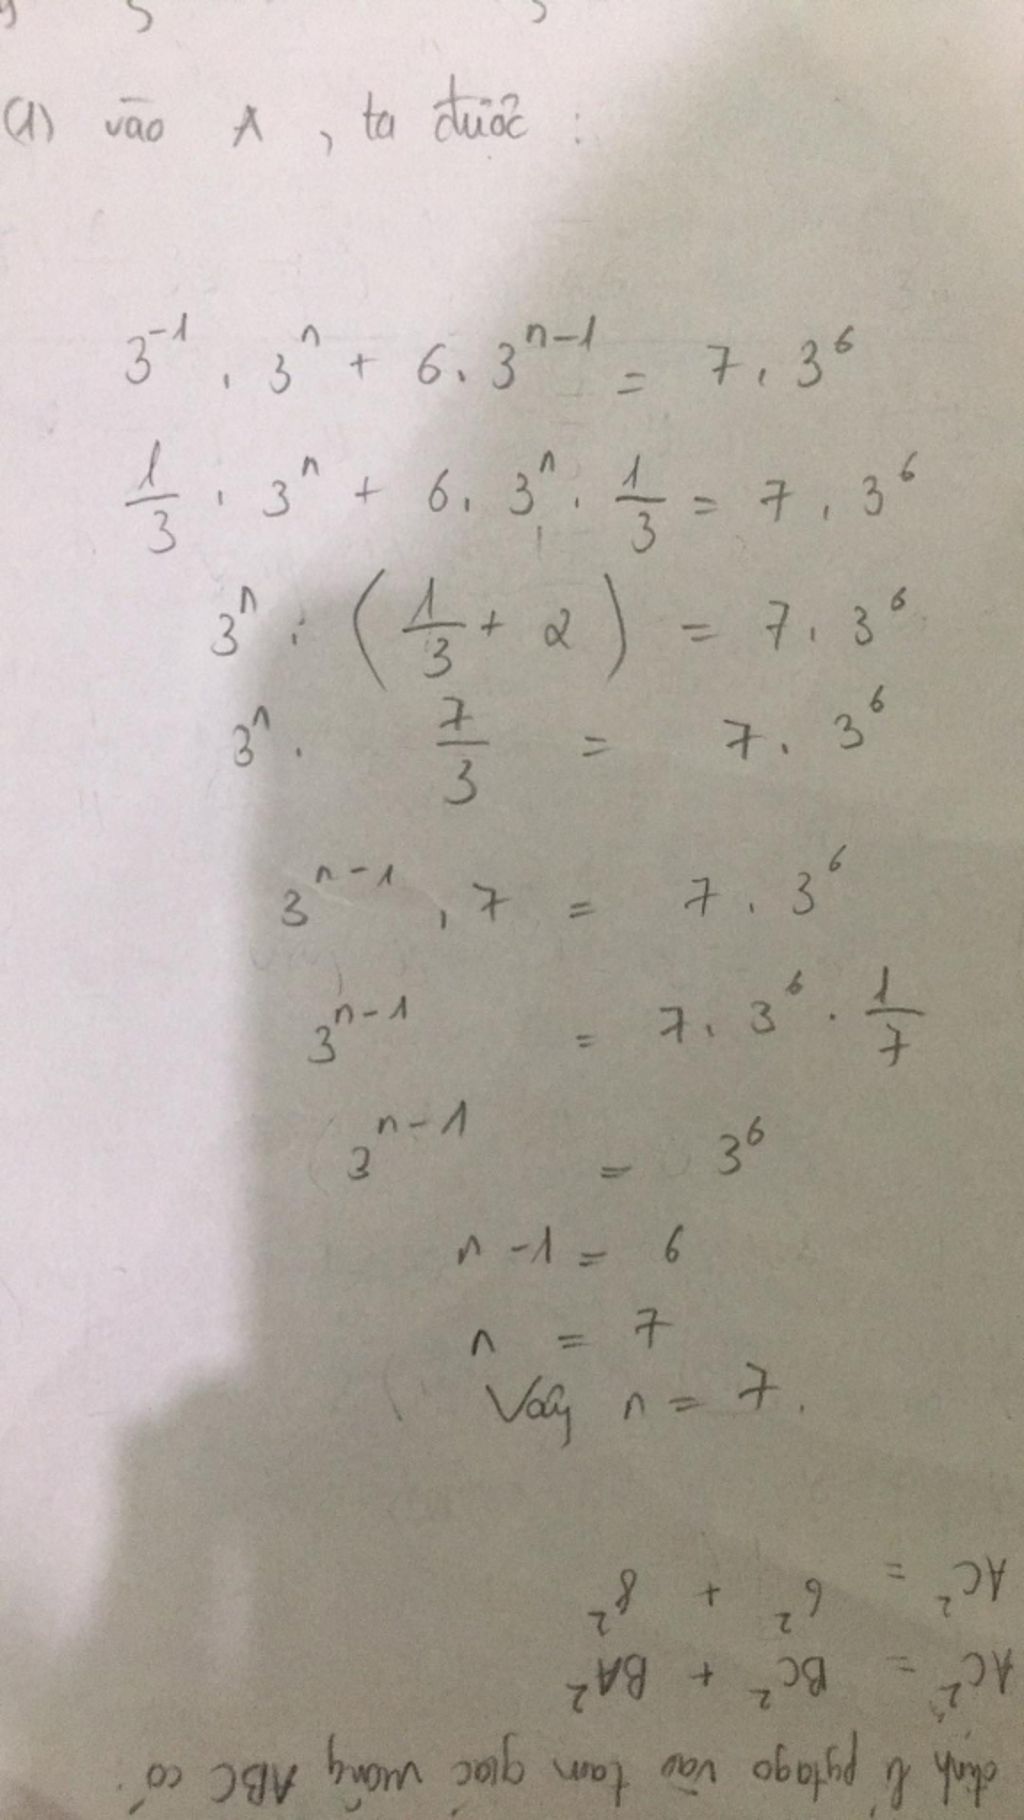 (1) vào A, ta được :
3^{-1} . 3^n + 6. 3^{n-1} = 7 . 3^6
1/3 . 3^n + 6. 3^n . 1/3 = 7 . 3^6
3^n . (1/3 + 2) = 7 . 3^6
3^n . 7/3 = 7 . 3^6
3^{n-1} . 7 = 7 . 3^6
3^{n-1} = 7 . 3^6 . 1/7
3^{n-1} = 3^6
n - 1 = 6
n = 7
Vậy n = 7.
định lí pytago vào tam giác vuông ABC có :
AC² = BC² + BA²
AC² = 6² + 8²